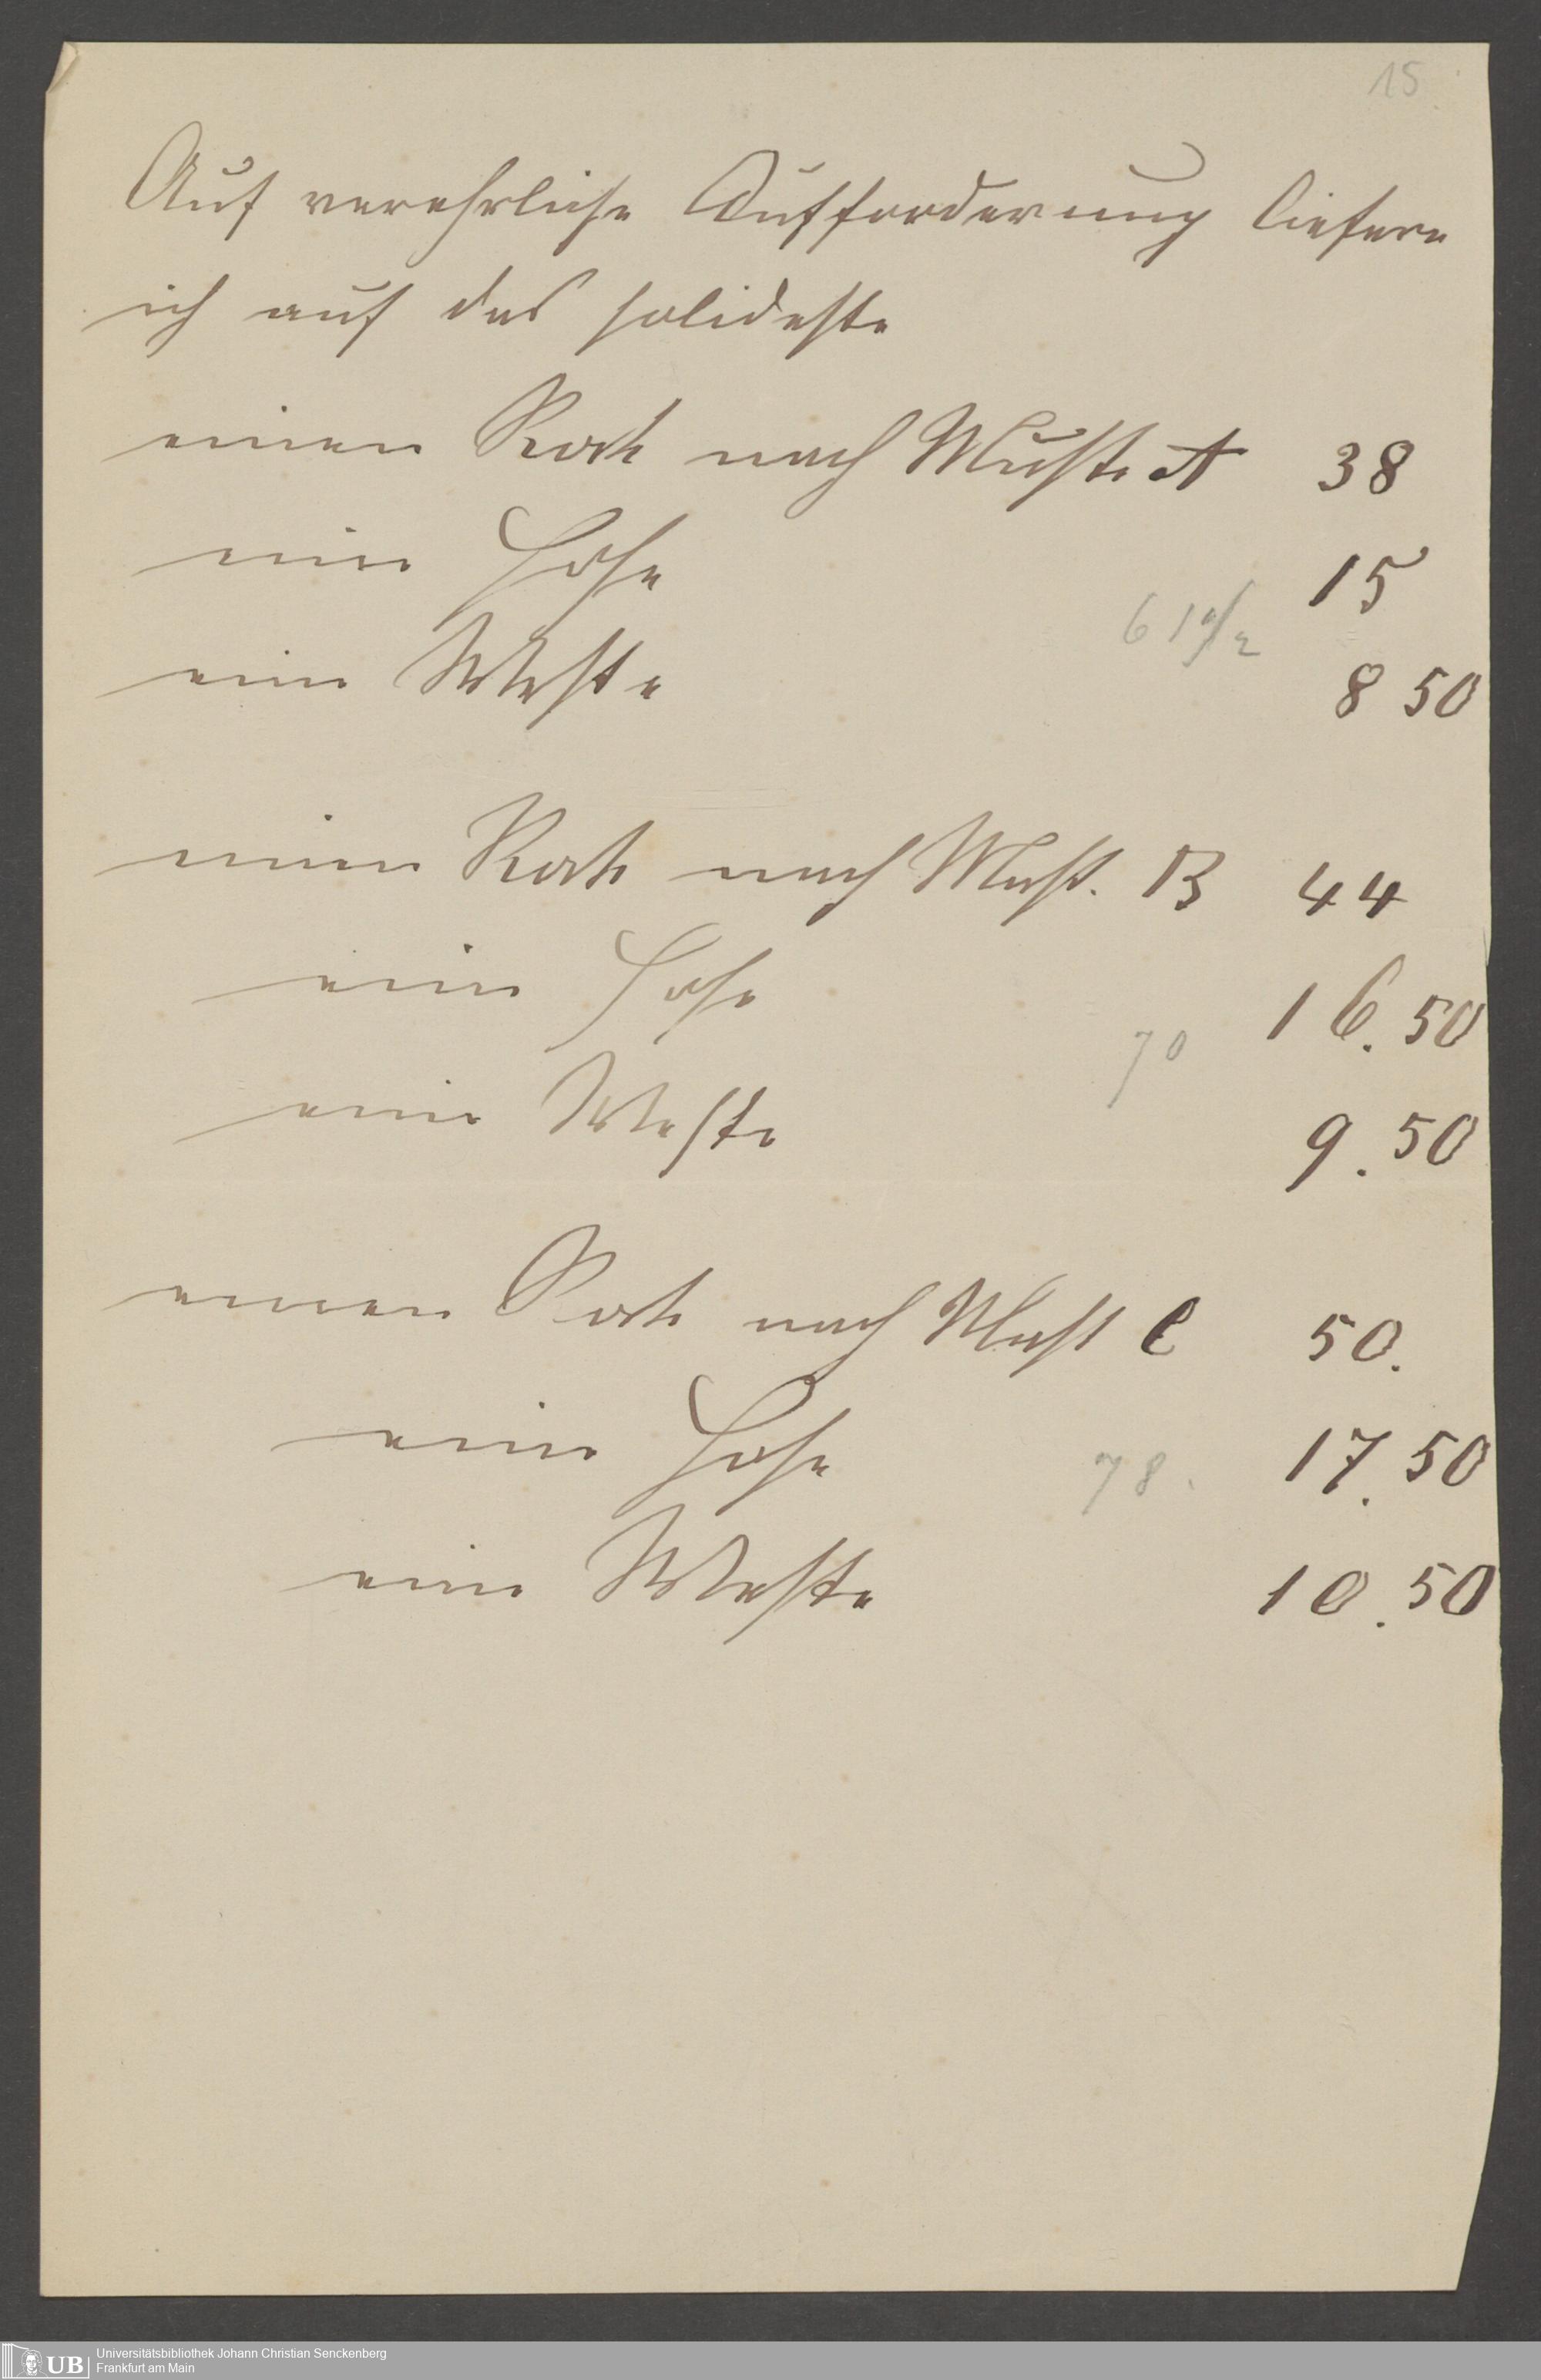 15
Auf verehrliche Aufforderung liefere
ich auf das solideste
einen Rock nach Muste A 38
eine Hose 15
61 1/2
eine Weste 8 50
einen Rock nach Must. B 44
eine Hose 16.50
70
eine Weste 9.50
einen Rock nach Must C 50.
eine Hose 78. 17.50
eine Weste 10.50
UB Universitätsbibliothek Johann Christian Senckenberg
Frankfurt am Main